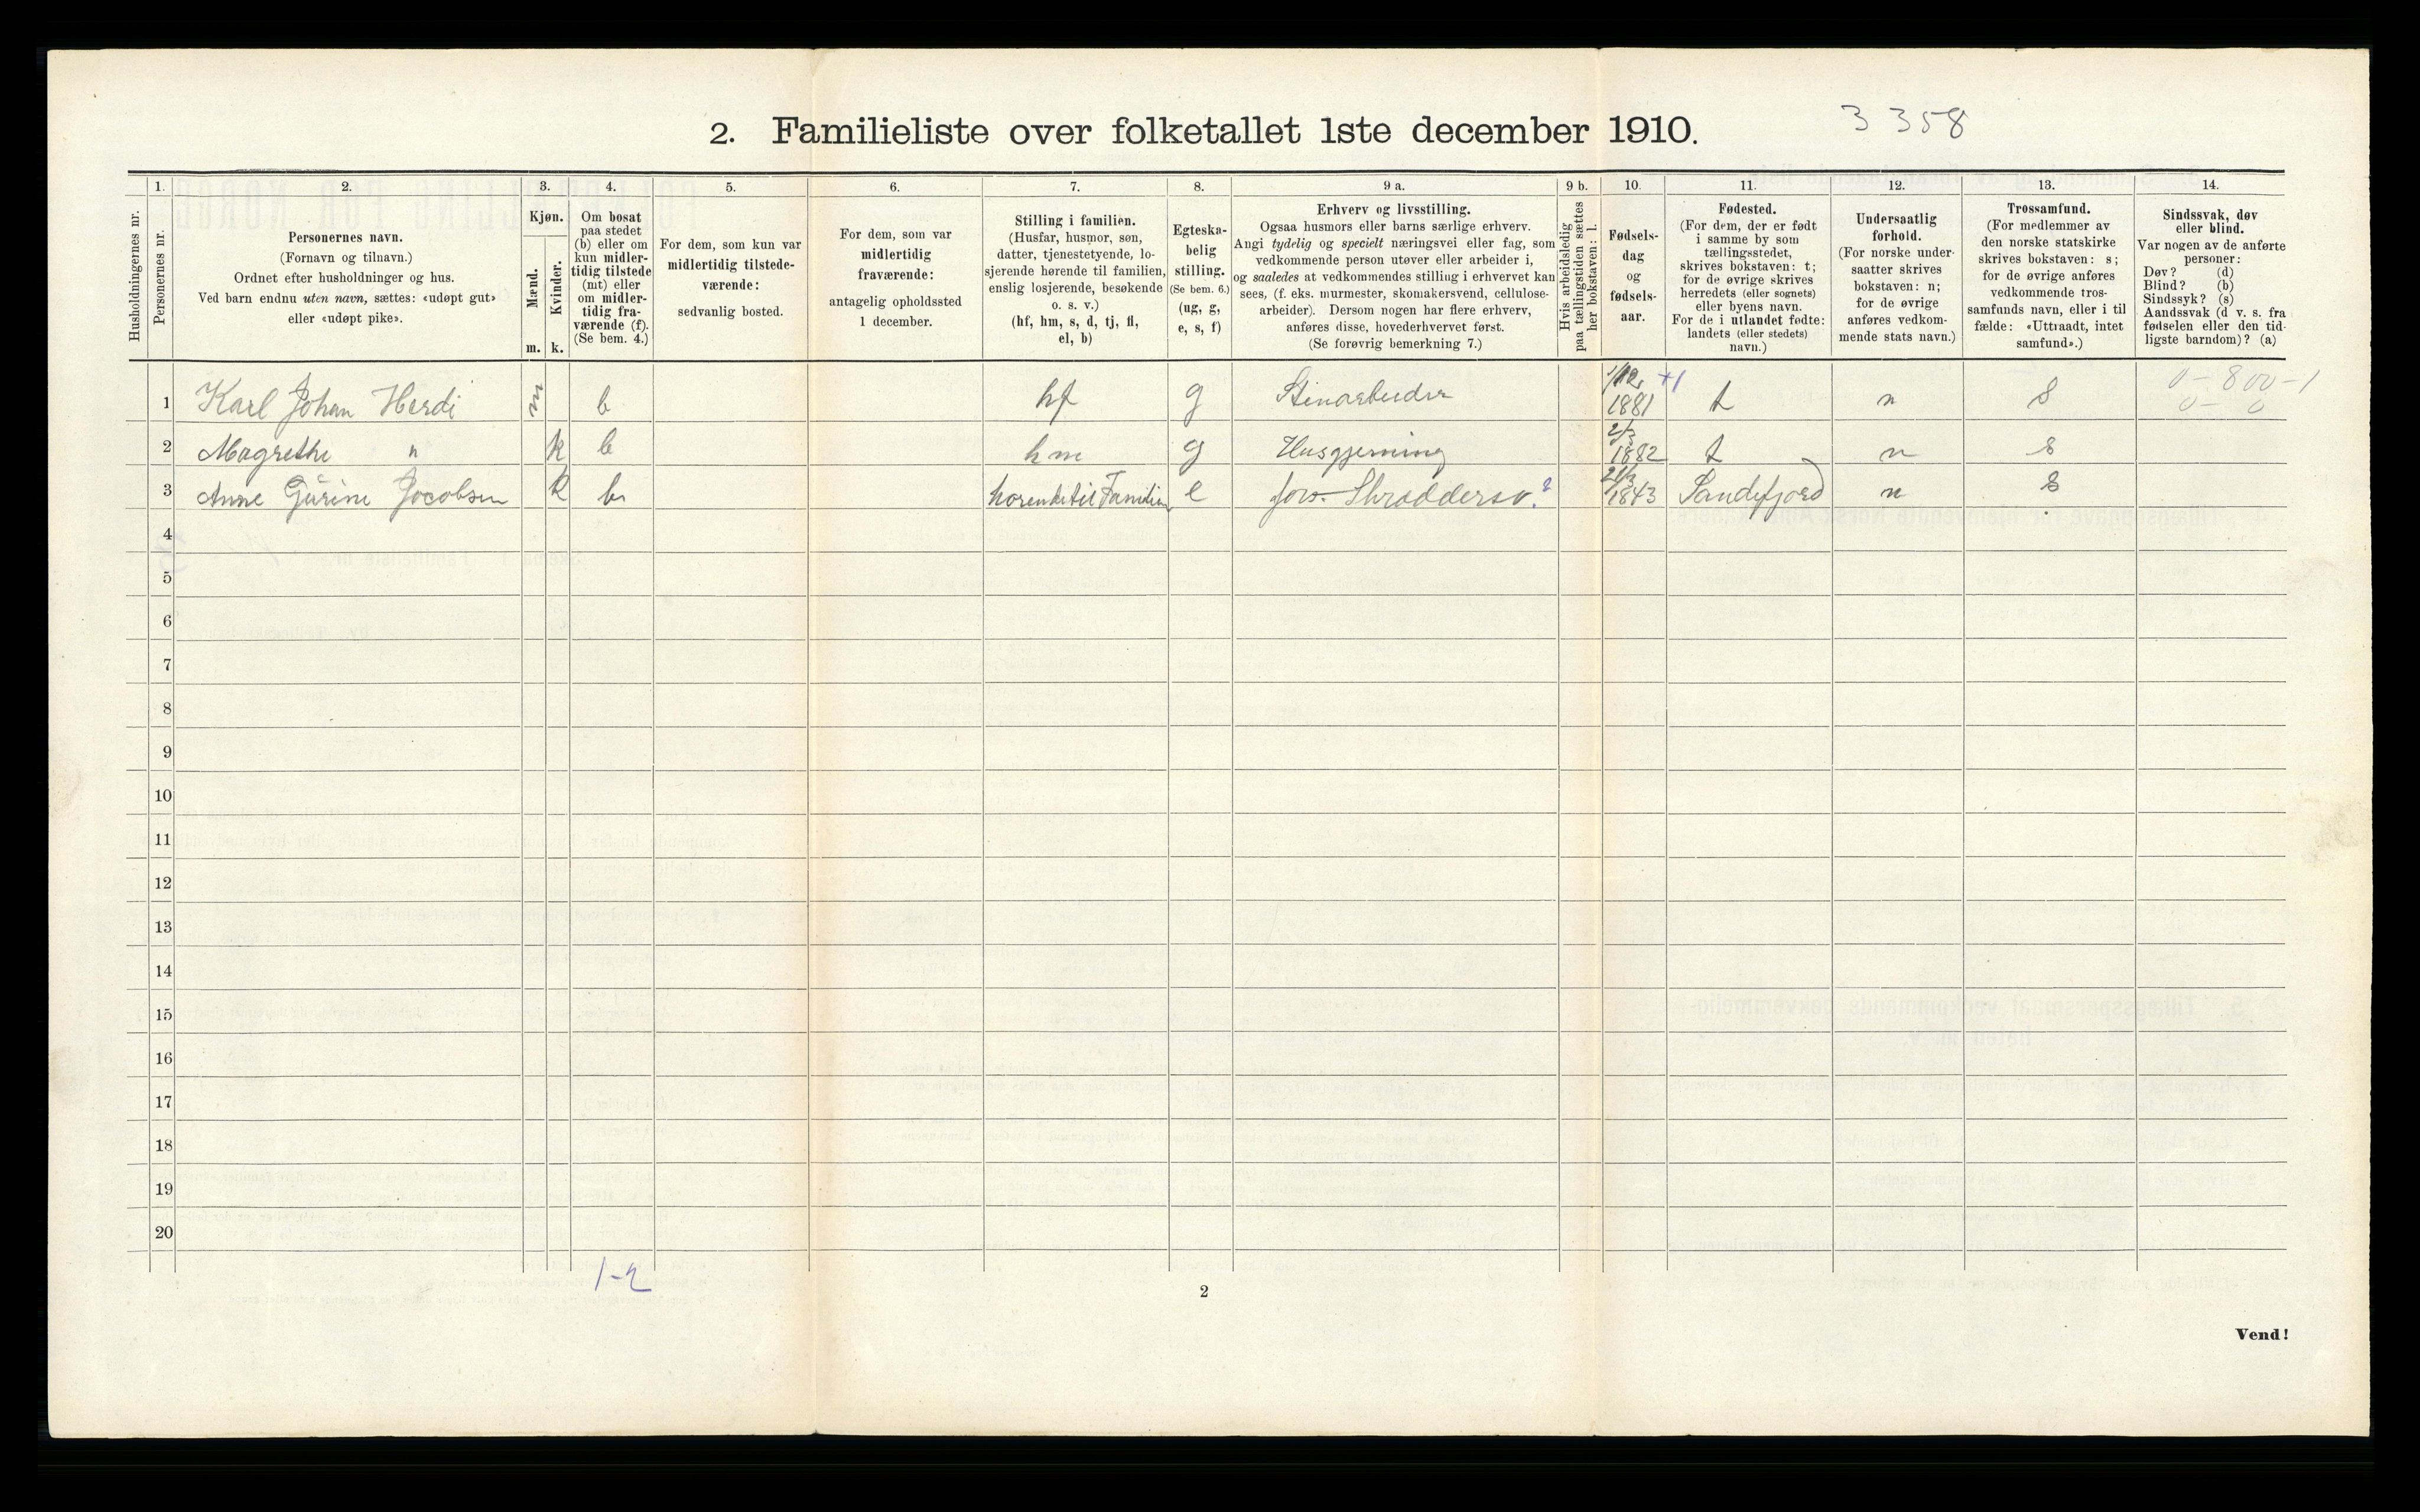 2. Familieliste over folketallet 1ste december 1910.
3 358
1. 2. 3. 4. 5. 6. 7. 8. 9 a. 9 b. 10. 11. 12. 13. 14.
Husholdningernes nr.
Personernes nr.
Personernes navn.
(Fornavn og tilnavn.)
Ordnet efter husholdninger og hus.
Ved barn endnu uten navn, sættes: «udøpt gut»
eller «udøpt pike».
Kjøn.
Mænd.
Kvinder.
m. k.
Om bosat
paa stedet
(b) eller om
kun midler-
tidig tilstede
(mt) eller
om midler-
tidig fra-
værende (f).
(Se bem. 4.)
For dem, som kun var
midlertidig tilstede-
værende:
sedvanlig bosted.
For dem, som var
midlertidig
fraværende:
antagelig opholdssted
1 december.
Stilling i familien.
(Husfar, husmor, søn,
datter, tjenestetyende, lo-
sjerende hørende til familien,
enslig losjerende, besøkende
o. s. v.)
(hf, hm, s, d, tj, fl,
el, b)
Egteska-
belig
stilling.
(Se bem. 6.)
(ug, g,
e, s, f)
Erhverv og livsstilling.
Ogsaa husmors eller barns særlige erhverv.
Angi tydelig og specielt næringsvei eller fag, som
vedkommende person utøver eller arbeider i,
og saaledes at vedkommendes stilling i erhvervet kan
sees, (f. eks. murmester, skomakersvend, cellulose-
arbeider). Dersom nogen har flere erhverv,
anføres disse, hovederhvervet først.
(Se forøvrig bemerkning 7.)
Hvis arbeidsledig
paa tællingstiden sættes
her bokstaven: l.
Fødsels-
dag
og
fødsels-
aar.
Fødested.
(For dem, der er født
i samme by som
tællingsstedet,
skrives bokstaven: t;
for de øvrige skrives
herredets (eller sognets)
eller byens navn.
For de i utlandet fødte:
landets (eller stedets)
navn.)
Undersaatlig
forhold.
(For norske under-
saatter skrives
bokstaven: n;
for de øvrige
anføres vedkom-
mende stats navn.)
Trossamfund.
(For medlemmer av
den norske statskirke
skrives bokstaven: s;
for de øvrige anføres
vedkommende tros-
samfunds navn, eller i til
fælde: «Uttraadt, intet
samfund».)
Sindssvak, døv
eller blind.
Var nogen av de anførte
personer:
Døv? (d)
Blind? (b)
Sindssyk? (s)
Aandssvak (d v. s. fra
fødselen eller den tid-
ligste barndom)? (a)
1 Karl Johan Herdi m b hf g Stenarbeider 1881 t n S 0-800-1
0- 0
2 Magrethe " k b hm g Husgjerning 2/3 1882 t n S
3 Anne Gurine Jocobsen k b horendetil Familien e 1843 Sandefjord n S
4
5
6
7
8
9
10
11
12
13
14
15
16
17
18
19
20
1-2
2
Vend!